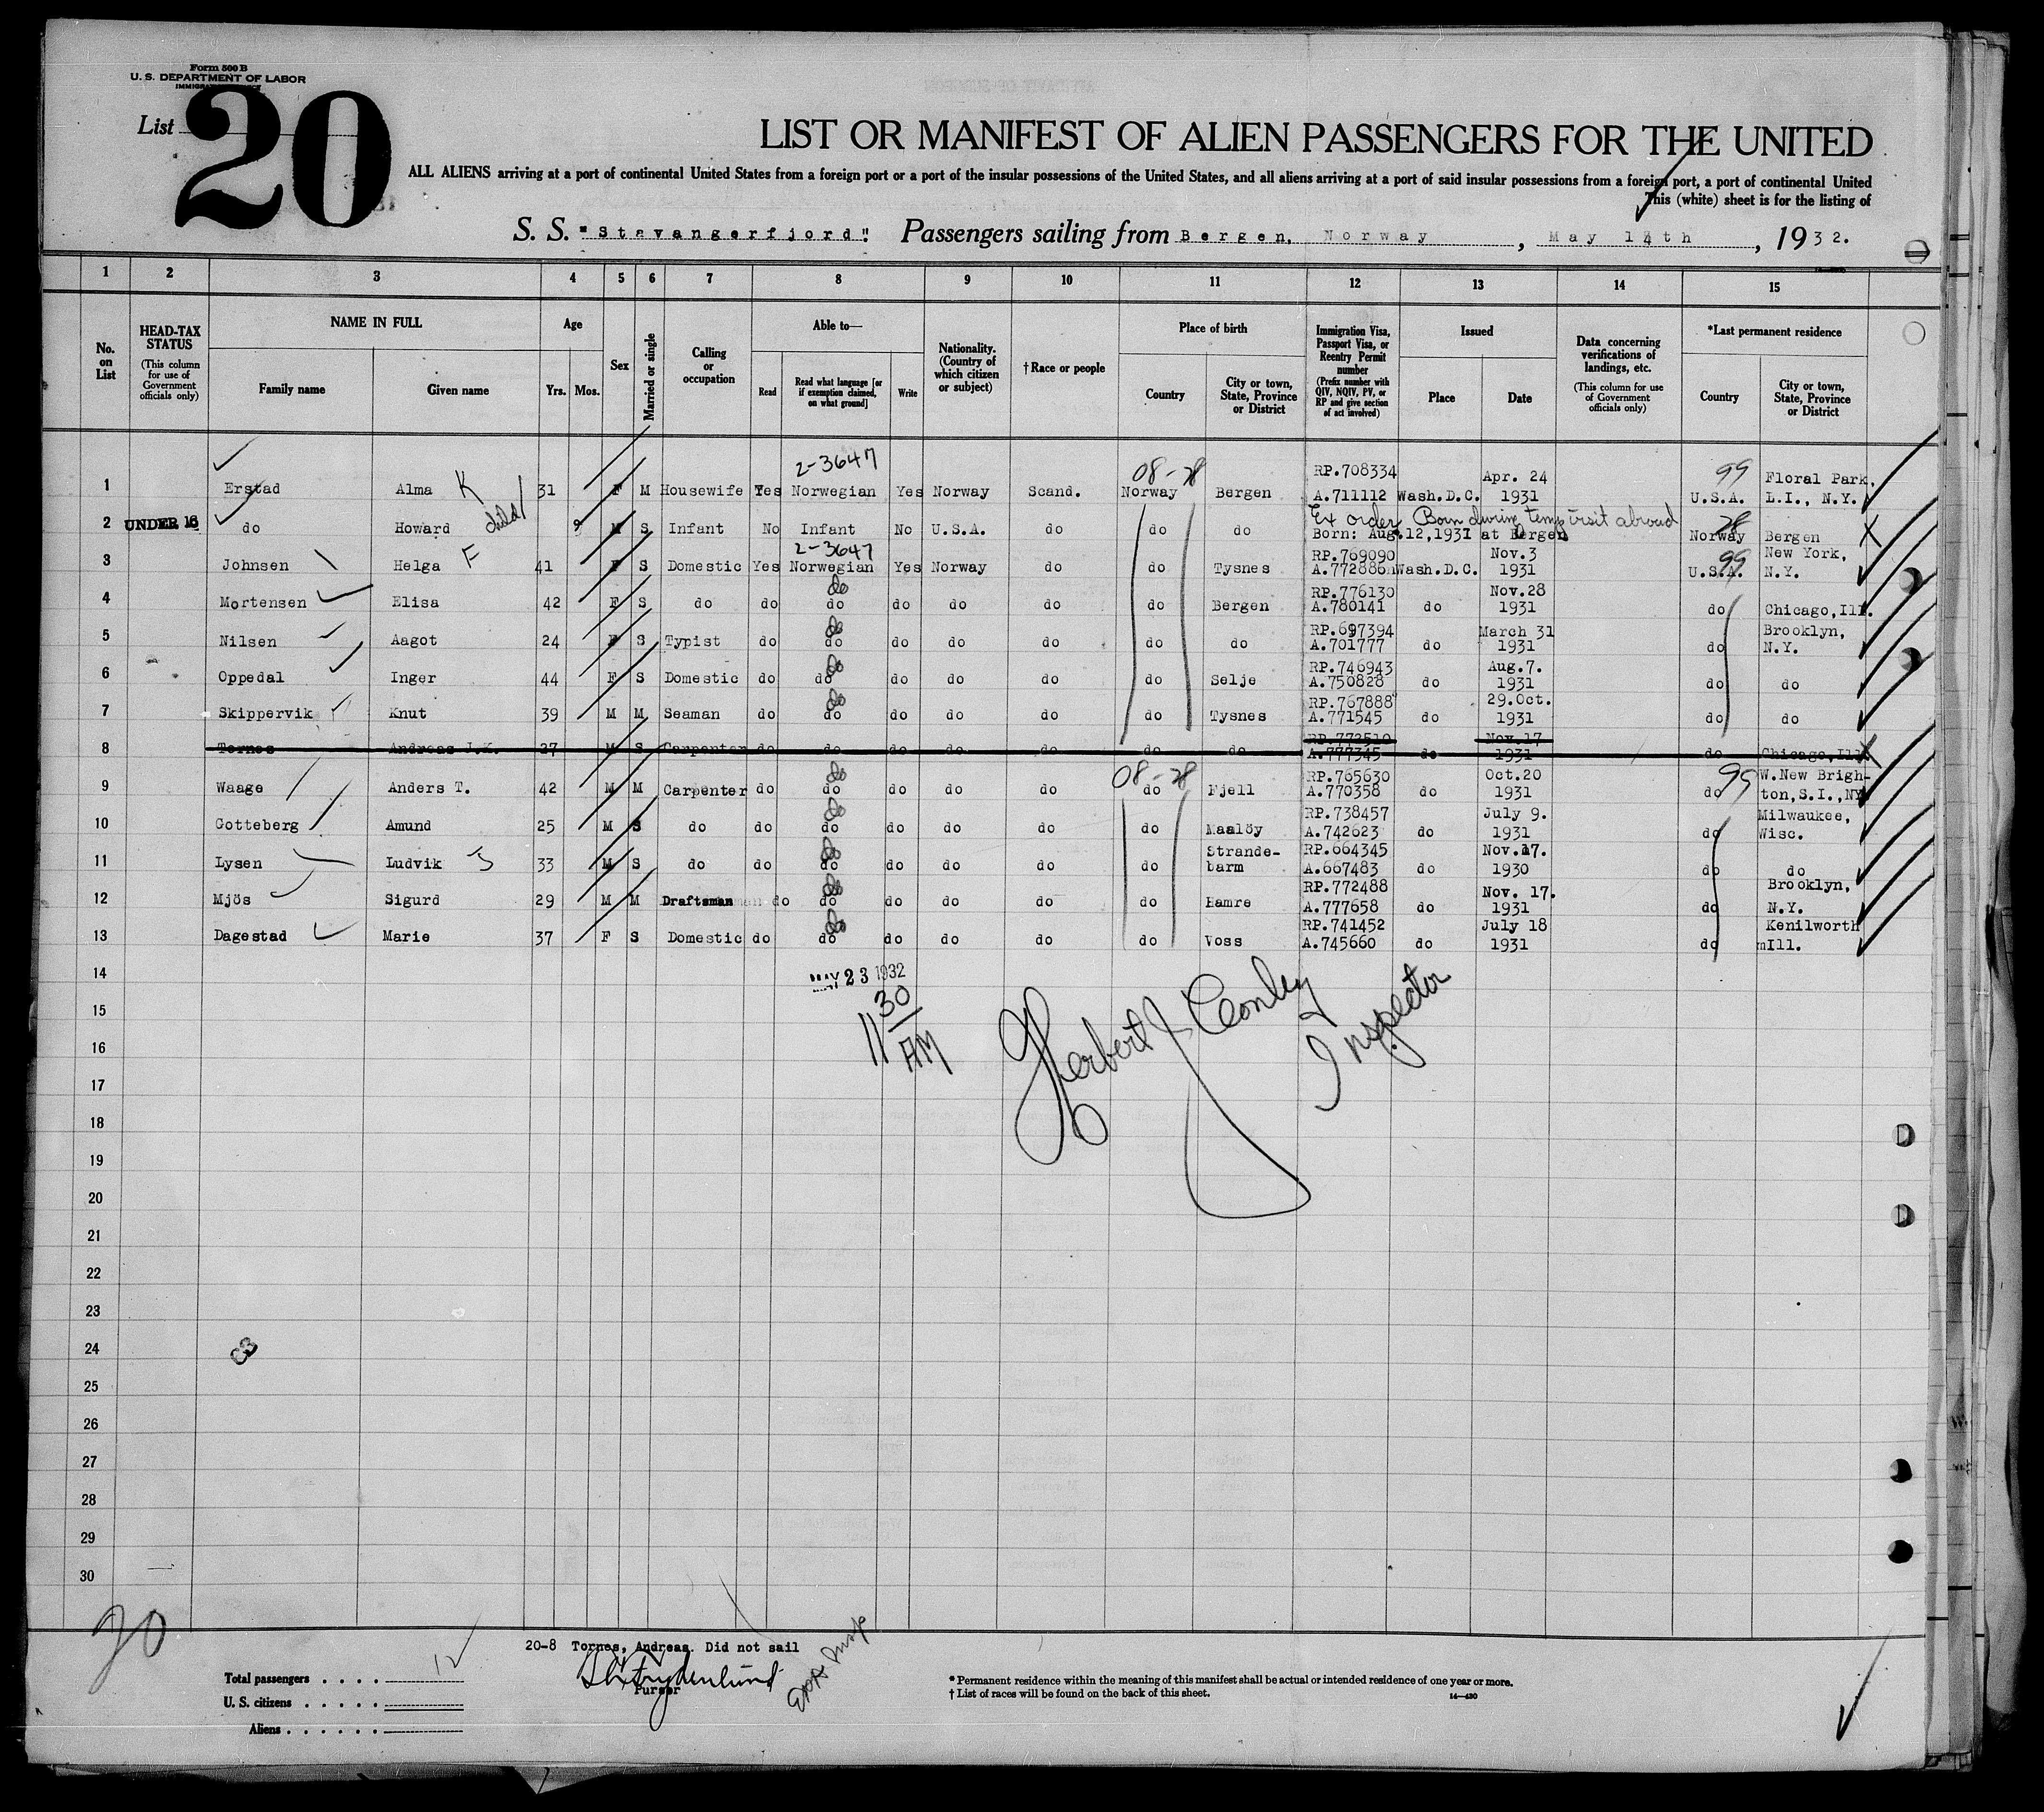 Form 500 B
U. S. DEPARTMENT OF LABOR
List 20
LIST OR MANIFEST OF ALIEN PASSENGERS FOR THE UNITED
ALL ALIENS arriving at a port of continental United States from a foreign port or a port of the insular possessions of the United States, and all aliens arriving at a port of said insular possessions from a foreign port, a port of continental United
This (white) sheet is for the listing of
S. S. "Stavangerfjord". Passengers sailing from Bergen, Norway, May 14th, 1932.
1 2 3 4 5 6 7 8 9 10 11 12 13 14 15
No. on List
HEAD-TAX STATUS (This column for use of Government officials only)
NAME IN FULL Family name Given name
Age Yrs. Mos.
Sex
Married or single
Calling or occupation
Able to— Read Read what language [or if exemption claimed, on what ground] Write
Nationality. (Country of which citizen or subject)
†Race or people
Place of birth Country City or town, State, Province or District
Immigration Visa, Passport Visa, or Reentry Permit number (Prefix number with QIV, NQIV, PV, or RP and give section of act involved)
Issued Place Date
Data concerning verifications of landings, etc. (This column for use of Government officials only)
*Last permanent residence Country City or town, State, Province or District
2-3647 08-28 RP.708334 Apr. 24 99 Floral Park,
1 Erstad Alma K 31 F M Housewife Yes Norwegian Yes Norway Scand. Norway Bergen A.711112 Wash.D.C. 1931 U.S.A. L.I., N.Y.
Ex order Born during temp visit abroad 28
2 UNDER 16 do Howard child 9 M S Infant No Infant No U.S.A. do do do Born: Aug.12,1931 at Bergen Norway Bergen
2-3647 RP.769090 Nov.3 99 New York,
3 Johnsen Helga F 41 F S Domestic Yes Norwegian Yes Norway do do Tysnes A.772886 Wash.D.C. 1931 U.S.A. N.Y.
do RP.776130 Nov.28
4 Mortensen Elisa 42 F S do do do do do do do Bergen A.780141 do 1931 do Chicago,Ill.
do RP.697394 March 31 Brooklyn,
5 Nilsen Aagot 24 F S Typist do do do do do do do A.701777 do 1931 do N.Y.
do RP.746943 Aug.7.
6 Oppedal Inger 44 F S Domestic do do do do do do Selje A.750828 do 1931 do do
do RP.767888 29.Oct.
7 Skippervik Knut 39 M M Seaman do do do do do do Tysnes A.771545 do 1931 do do
RP.772510 Nov.17
8 Tornes Andreas J.K. 27 M S Carpenter do do do do do do do A.777345 do 1931 do Chicago,Ill
do 08-28 RP.765630 Oct.20 99 W.New Brigh-
9 Waage Anders T. 42 M M Carpenter do do do do do do Fjell A.770358 do 1931 do ton,S.I.,NY
do RP.738457 July 9. Milwaukee,
10 Gotteberg Amund 25 M S do do do do do do do Maalöy A.742623 do 1931 do Wisc.
do Strande- RP.664345 Nov.17.
11 Lysen Ludvik J 33 M S do do do do do do do barm A.667483 do 1930 do do
do RP.772488 Nov. 17. Brooklyn,
12 Mjös Sigurd 29 M M Draftsman do do do do do do Hamre A.777658 do 1931 do N.Y.
do RP.741452 July 18 Kenilworth
13 Dagestad Marie 37 F S Domestic do do do do do do Voss A.745660 do 1931 do Ill.
14 MAY 23 1932
15 11 30 AM Herbert J. Conley Inspector
16
17
18
19
20
21
22
23
24
25
26
27
28
29
30
20
20-8 Tornes, Andreas. Did not sail
Purser
Total passengers . . . . 12
U. S. citizens . . . . .
Aliens . . . . . .
* Permanent residence within the meaning of this manifest shall be actual or intended residence of one year or more.
† List of races will be found on the back of this sheet.
14—430